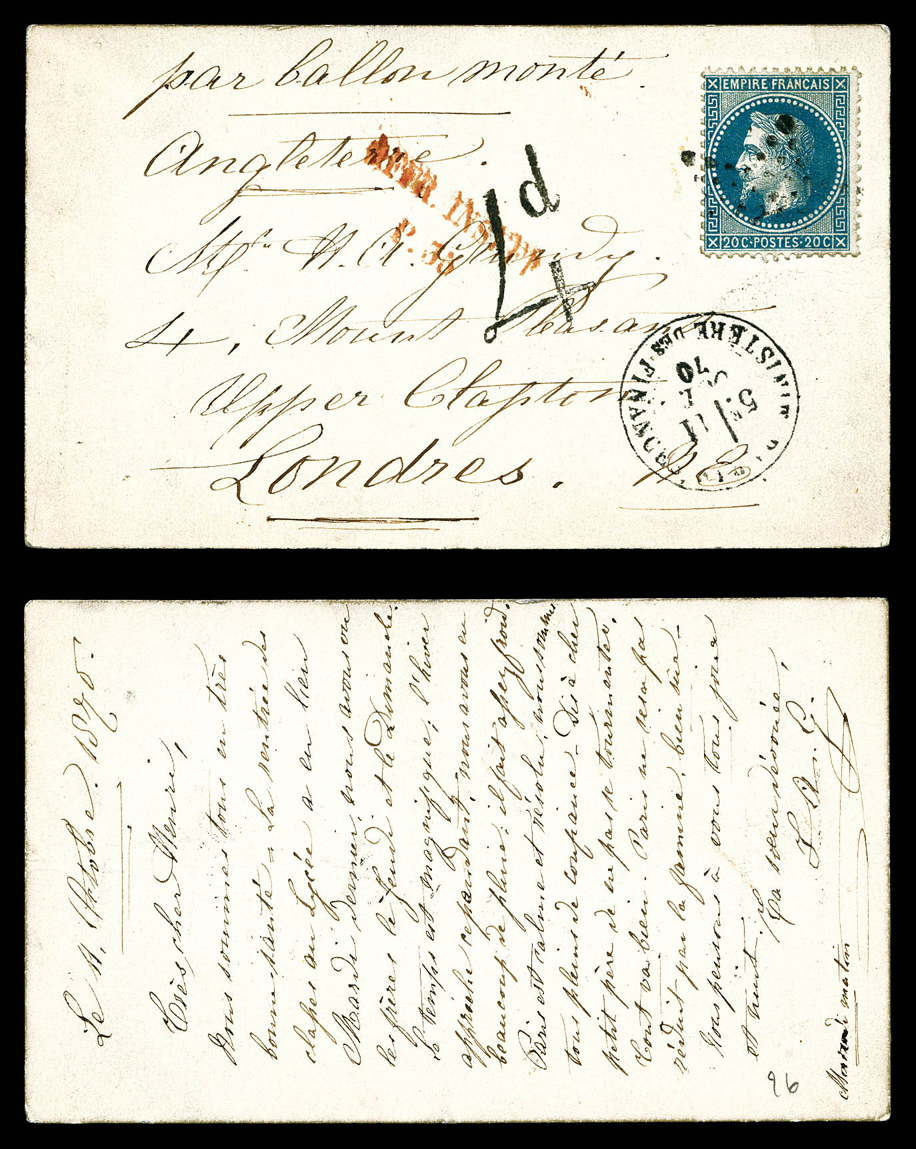 par ballon monté
EMPIRE FRANÇAIS
20 C·POSTES·20 C
Angleterre.
AFFR. INSUFF
P. 35
4d
Mr. H. A. Grundy.
4, Mount Pleasant
Upper Clapton
Londres. N E
PARIS MINISTERE DES FINANCES
5E 11
70
Le 11 Octobre 1870.
Très cher Henri,
Nous sommes tous en très
bonne santé. La rentrée des
classes au Lycée a eu lieu
Mardi dernier, nous avons vu
les frères le Jeudi et le Dimanche.
le temps est magnifique; l'hiver
approche cependant, nous avons eu
beaucoup de pluie; il fait assez froid.
Paris est calme et résolu, nous sommes
tous pleins de confiance. Dis à cher
petit père de ne pas se tourmenter,
tout va bien. Paris ne sera pas
réduit par la famine, bien sûr.
Nous pensons à vous tous jour
et nuit.
Ta sœur dévouée,
L. A. G.
Mercredi matin
96